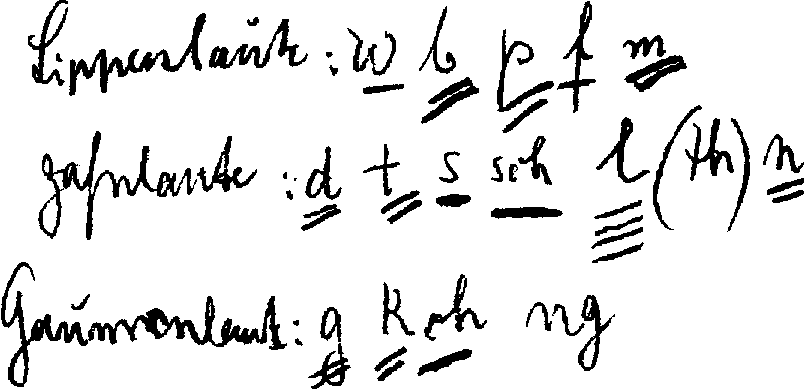 Lippenlaute: w b p f m
Zahnlaute: d t s sch l (th) n
Gaumenlaut: g k ch ng